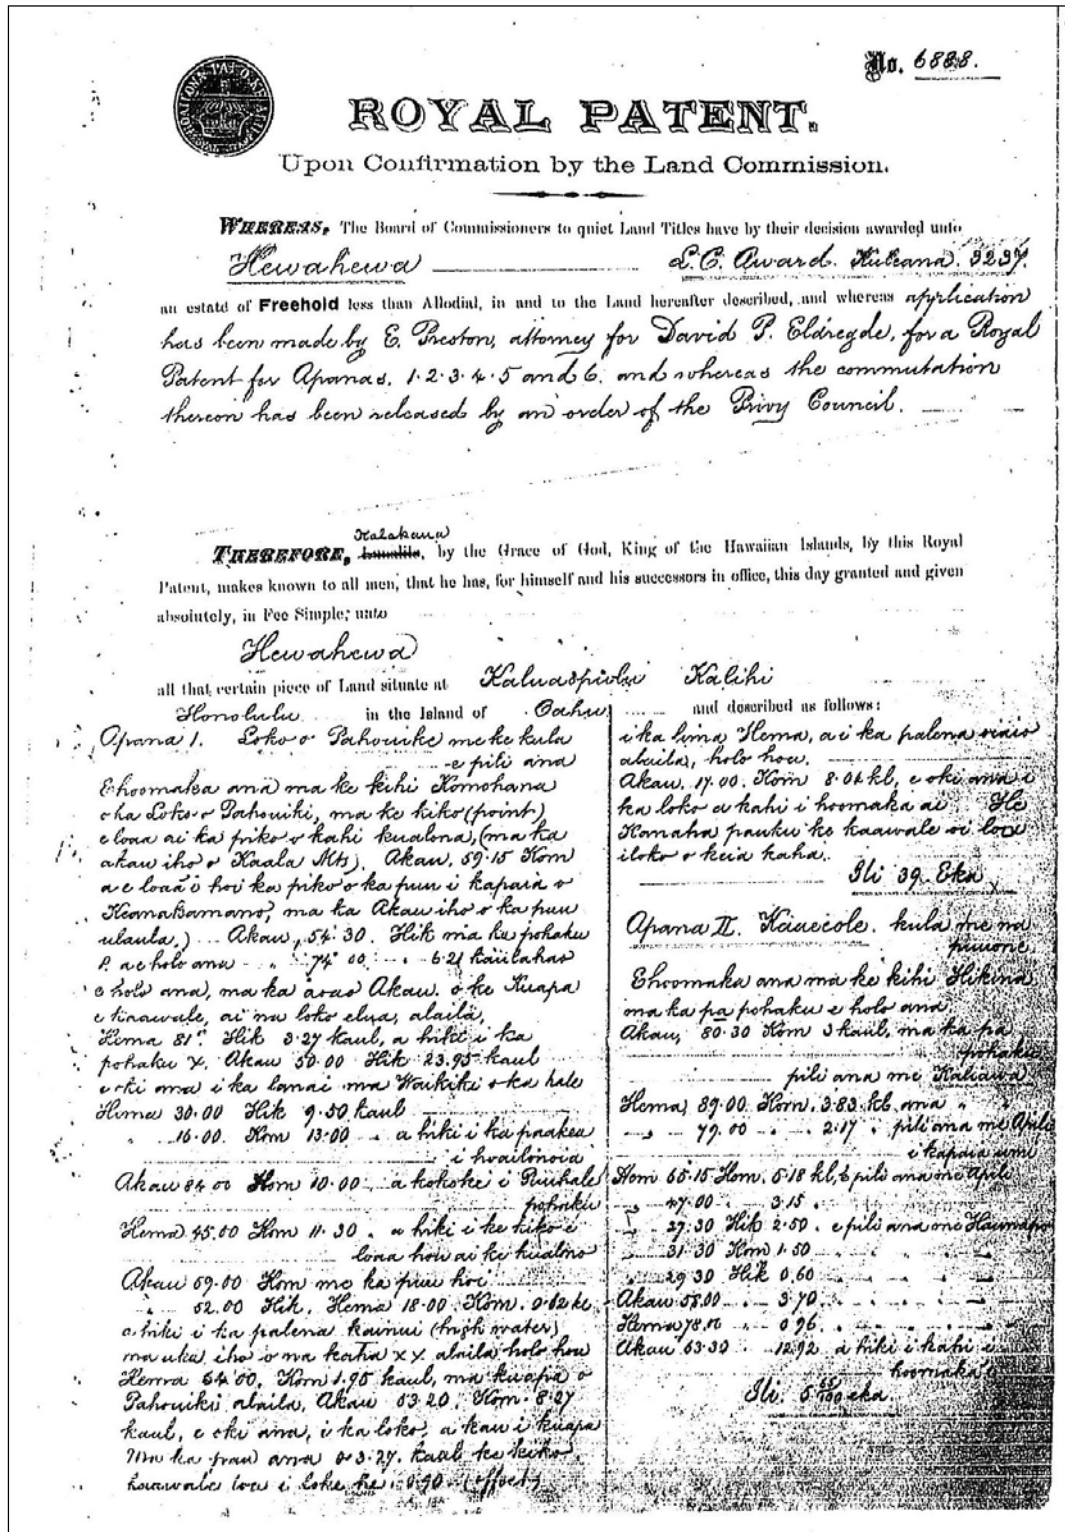 No. 6828.
ROYAL PATENT.
Upon Confirmation by the Land Commission.
WHEREAS, The Board of Commissioners to quiet Land Titles have by their decision awarded unto
Hewahewa L. C. Award. Kuleana. 3237.
an estate of Freehold less than Allodial, in and to the Land hereafter described, and whereas application
has been made by E. Preston, attorney for David P. Eldregde, for a Royal
Patent for Apanas. 1. 2. 3. 4. 5 and 6. and whereas the commutation
thereon has been released by an order of the Privy Council.
Kalakaua
THEREFORE, Lunalilo, by the Grace of God, King of the Hawaiian Islands, by this Royal
Patent, makes known to all men, that he has, for himself and his successors in office, this day granted and given
absolutely, in Fee Simple, unto
Hewahewa
all that certain piece of Land situate at Kalihi
Honolulu in the Island of Oahu and described as follows:
Apana 1. Loko o Pahouiki me ke kula
e pili ana
Ehoomaka ana ma ke kihi Komohana
o ka Loko o Pahouiki, ma ke kiko (point)
e loaa ai ka piko o kahi kualona, (ma ka
akau iho o Kaala Mts). Akau. 59.15 Kom
a e loaa i hoi ka piko o ka puu i kapaia o
ma ka Akau iho o ka puu
ulaula.) Akau, 54.30. Hik ma ka pohaku
P. a e holo ana 74 00 6.21 kaulahao
e holo ana, ma ka aoao Akau. o ke Kuapa
e kaawale, ai na loko elua, alaila,
Hema 81° Hik 3.27 kaul, a hiki i ka
pohaku X. Akau 50.00 Hik 23.95 kaul
e oki ana i ka lanai ma Waikiki o ka hale
Hema 30.00 Hik 9.50 kaul
16.00. Kom 13.00 a hiki i ka paakea
i hoailonaia
Akau 84 00 Kom 10.00 a kokoke i Puuhale
pohaku
Hema 45.00 Kom 11.30 a hiki i ke kiko e
loaa hou ai ke kualono
Akau 69.00 Kom me ka puu hoi
52.00 Hik. Hema 18.00 Kom. 0.62 kl
a hiki i ka palena kainui (high water)
ma uka iho o na kaha x x. alaila holo hou
Hema 64 00. Kom 1.95 kaul, ma kuapa o
Pahouiki alaila, Akau 53.20. Kom. 8.27
kaul, e oki ana, i ka loko, a kau i kuapa
Ma ka pau ana o 3.27. kaul ke kiko
kaawale loa i loko he 0.90 (offset)
i ka lima Hema, a i ka palena
alaila, holo hou.
Akau. 17.00. Kom 8.04 kl, e oki ana i
ka loko a kahi i hoomaka ai He
Kanaha pauku ke kaawale
iloko o keia kaha.
Ili 39 Eka
Apana II. kula me na
puuone
Ehoomaka ana ma ke kihi Hikina
ma ka pa pohaku e holo ana
Akau, 80.30 Kom 3 kaul, ma ka pa
pohaku
pili ana me Kaliawa
Hema 89.00 Kom. 3.83. kl ana
79.00 2.17 pili ana me Apili
i kapaia umi
Hem 65.15 Kom. 5.18 kl, e pili ana me Apili
47.00 3.15
27.30 Hik 2.50. e pili ana me
31.30 Kom 1.50
29 30 Hik 0.60
Akau 58.00 3.70
Hema 78.00 0.96
Akau 63.30 12.92 a hiki i kahi i
hoomaka
Ili. 5 eka